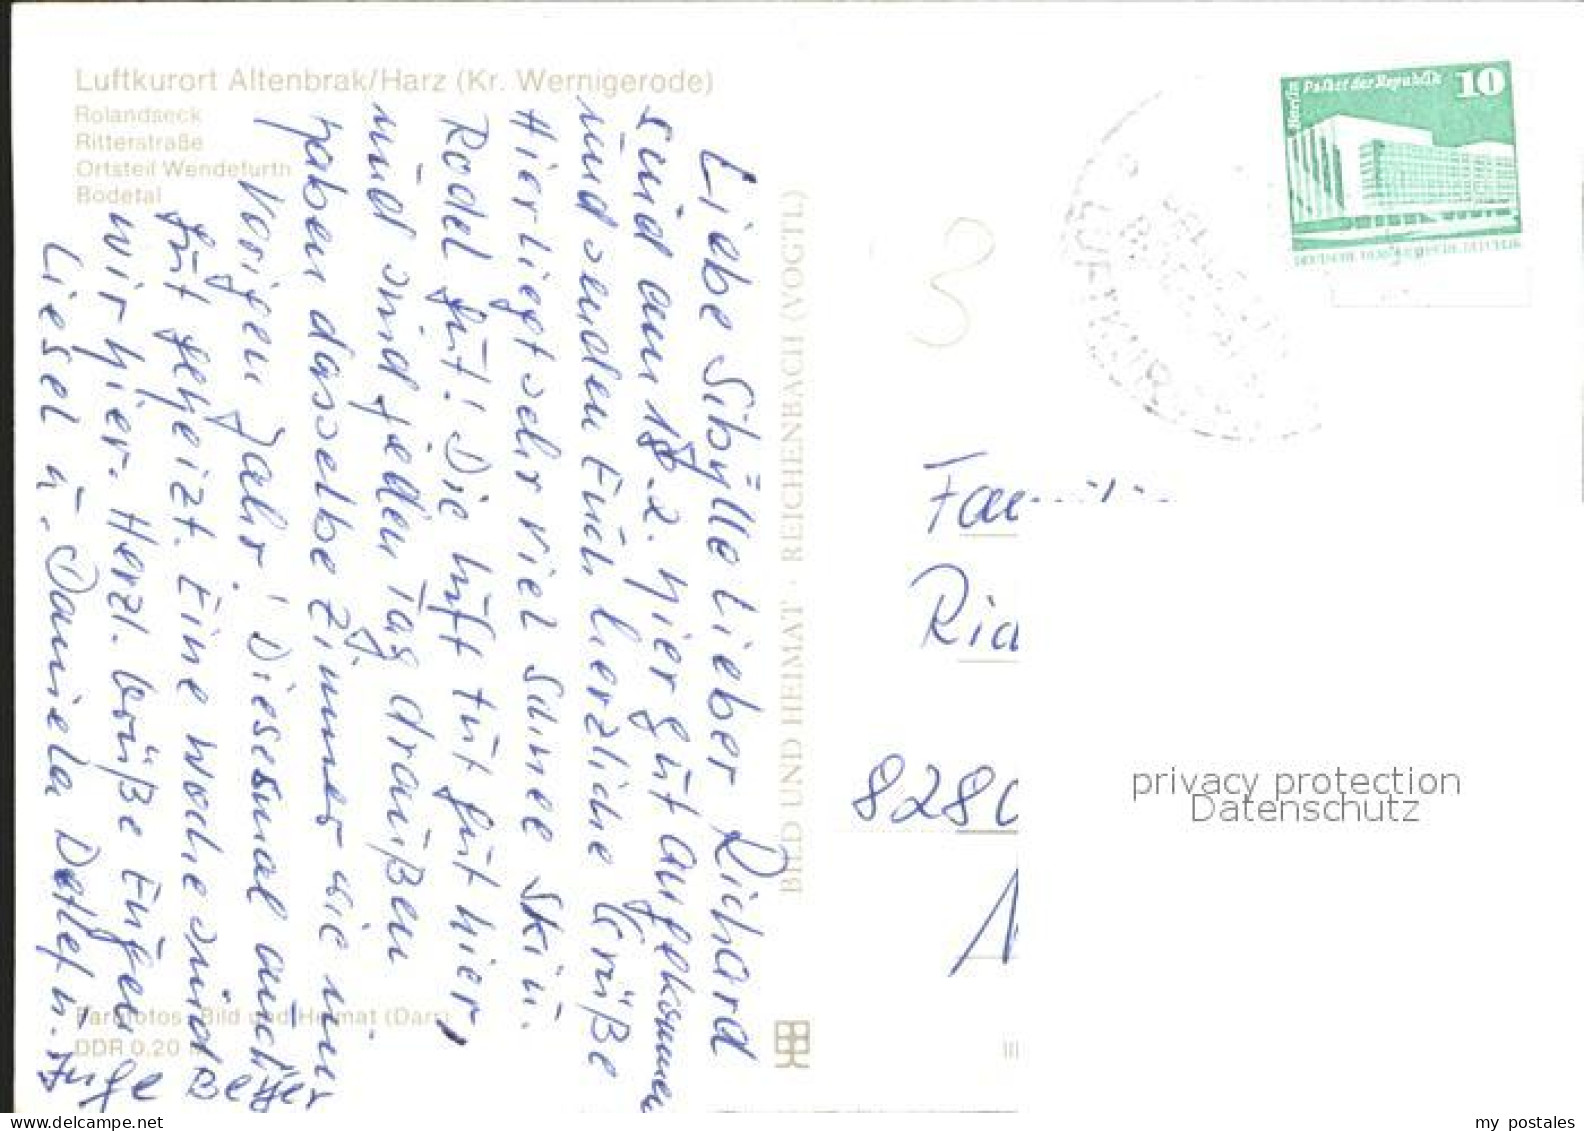 Luftkurort Altenbrak/Harz (Kr. Wernigerode)
Rolandseck
Ritterstraße
Ortsteil Wendefurth
Bodetal
Liebe Sibylle lieber Richard
sind am 18.2. hier gut angekommen
und senden Euch herzliche Grüße
Hier liegt sehr viel Schnee Ski u.
Rodel gut! Die Luft tut gut hier,
und sind jeden Tag draußen
haben dasselbe Zimmer wie im
Vorigen Jahr! Diesesmal auch
gut geheizt. Eine Woche sind
wir hier. Herzl. Grüße Eugen
Liesel u. Daniela Detlef u.
Inge
Farbfotos: Bild und Heimat (Darr)
DDR 0.20 M
BILD UND HEIMAT · REICHENBACH (VOGTL)
3
Berlin Palast der Republik 10
DEUTSCHE DEMOKRATISCHE REPUBLIK
LUFTKUR
8280
privacy protection
Datenschutz
www.delcampe.net
my_postales